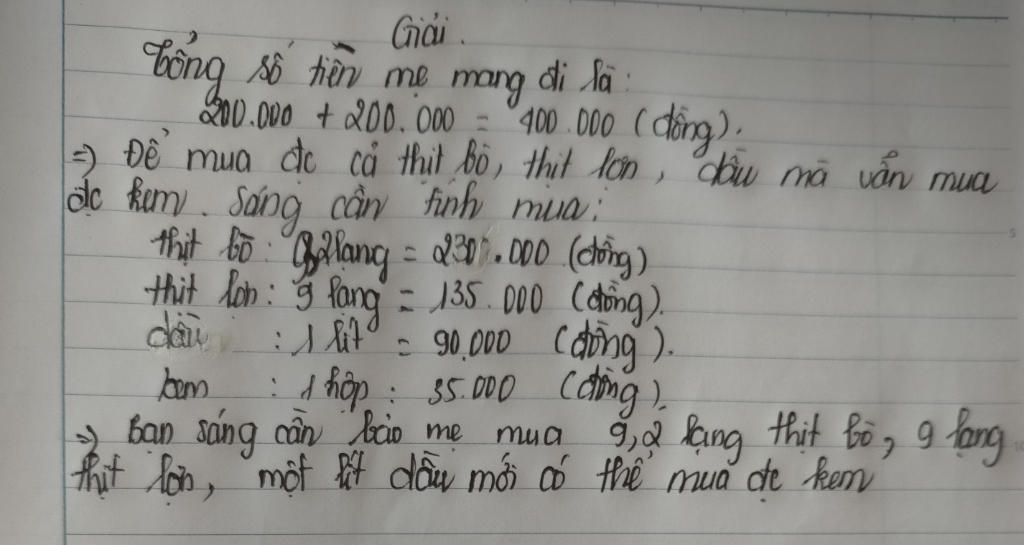 Giải.
Tổng số tiền mẹ mang đi là:
200.000 + 200.000 = 400.000 (đồng).
=> Để mua đc cả thịt bò, thịt lợn, dầu mà vẫn mua
đc kem. Sáng cần tính mua:
thịt bò: 9,2 lạng = 230.000 (đồng)
thịt lợn: 9 lạng = 135.000 (đồng).
dầu : 1 lít = 90.000 (đồng).
kem : 1 hộp : 35.000 (đồng).
=> Bạn sáng cần bảo mẹ mua 9,2 lạng thịt bò, 9 lạng
thịt lợn, một lít dầu mới có thể mua đc kem